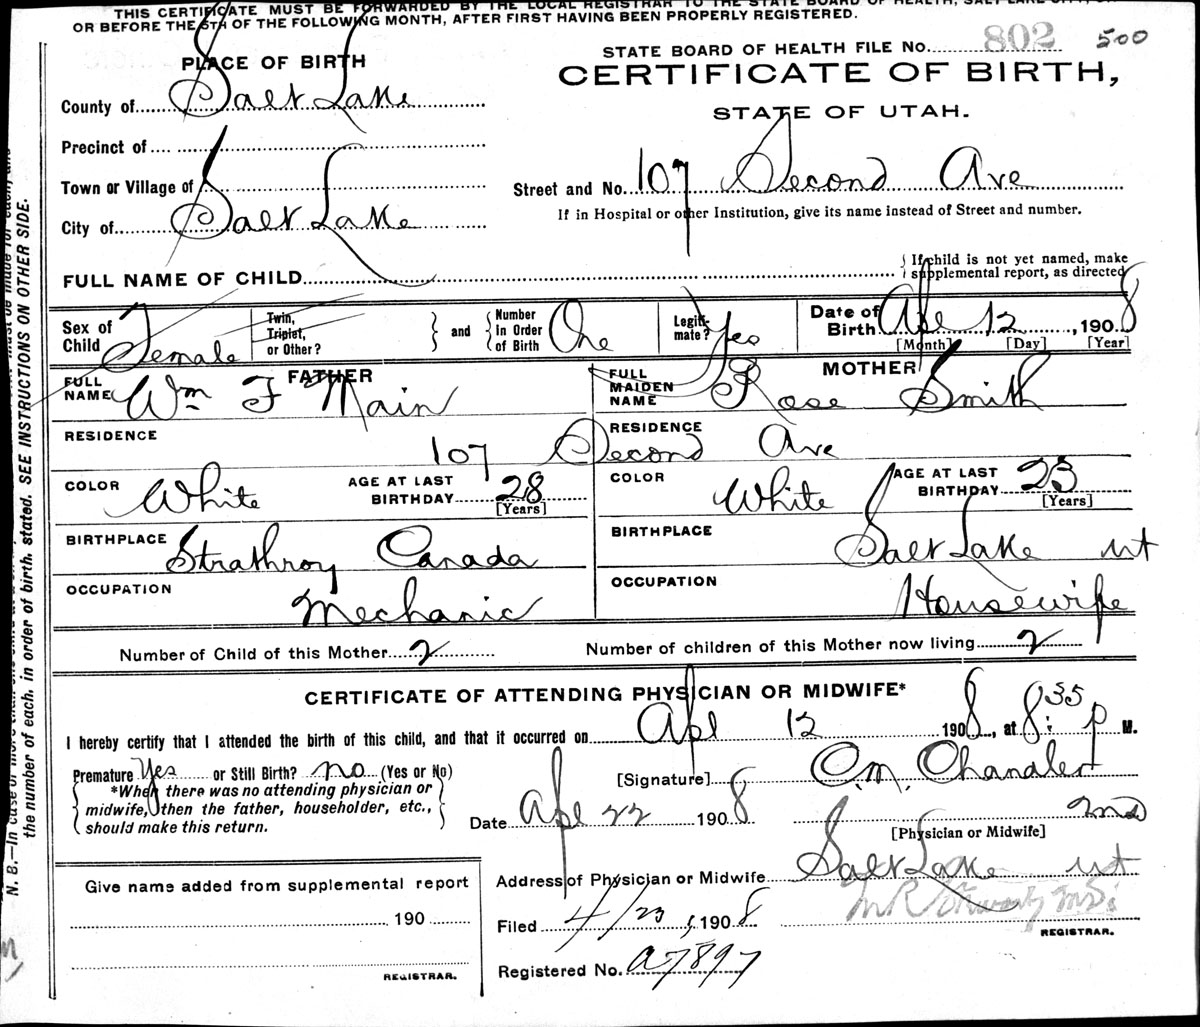 THIS CERTIFICATE MUST BE FORWARDED BY THE LOCAL REGISTRAR TO THE STATE BOARD OF HEALTH, SALT LAKE CITY, ON
OR BEFORE THE 5TH OF THE FOLLOWING MONTH, AFTER FIRST HAVING BEEN PROPERLY REGISTERED.
STATE BOARD OF HEALTH FILE No. 802 500
PLACE OF BIRTH
CERTIFICATE OF BIRTH,
STATE OF UTAH.
County of Salt Lake
Precinct of
Town or Village of
City of Salt Lake
Street and No. 107 Second Ave
If in Hospital or other Institution, give its name instead of Street and number.
FULL NAME OF CHILD
If child is not yet named, make supplemental report, as directed
Sex of Child Female
Twin, Triplet, or Other?
and
Number in Order of Birth One
Legitimate? Yes
Date of Birth Apl 12, 1908
[Month] [Day] [Year]
FATHER
FULL NAME Wm F Main
MOTHER
FULL MAIDEN NAME Rose Smith
RESIDENCE 107 Second Ave
RESIDENCE
COLOR White
AGE AT LAST BIRTHDAY 28
[Years]
COLOR White
AGE AT LAST BIRTHDAY 23
[Years]
BIRTHPLACE Strathroy Canada
BIRTHPLACE Salt Lake ut
OCCUPATION Mechanic
OCCUPATION Housewife
Number of Child of this Mother 2
Number of children of this Mother now living 2
CERTIFICATE OF ATTENDING PHYSICIAN OR MIDWIFE*
I hereby certify that I attended the birth of this child, and that it occurred on Apl 12 1908, at 8:35 p M.
Premature Yes or Still Birth? no (Yes or No)
*When there was no attending physician or midwife, then the father, householder, etc., should make this return.
[Signature] C.M. Chandler
Date Apl 22 1908
[Physician or Midwife]
Address of Physician or Midwife Salt Lake ut
Give name added from supplemental report
190
REGISTRAR.
Filed 4/23, 1908
REGISTRAR.
Registered No. a7897
the number of each, in order of birth, stated. SEE INSTRUCTIONS ON OTHER SIDE.